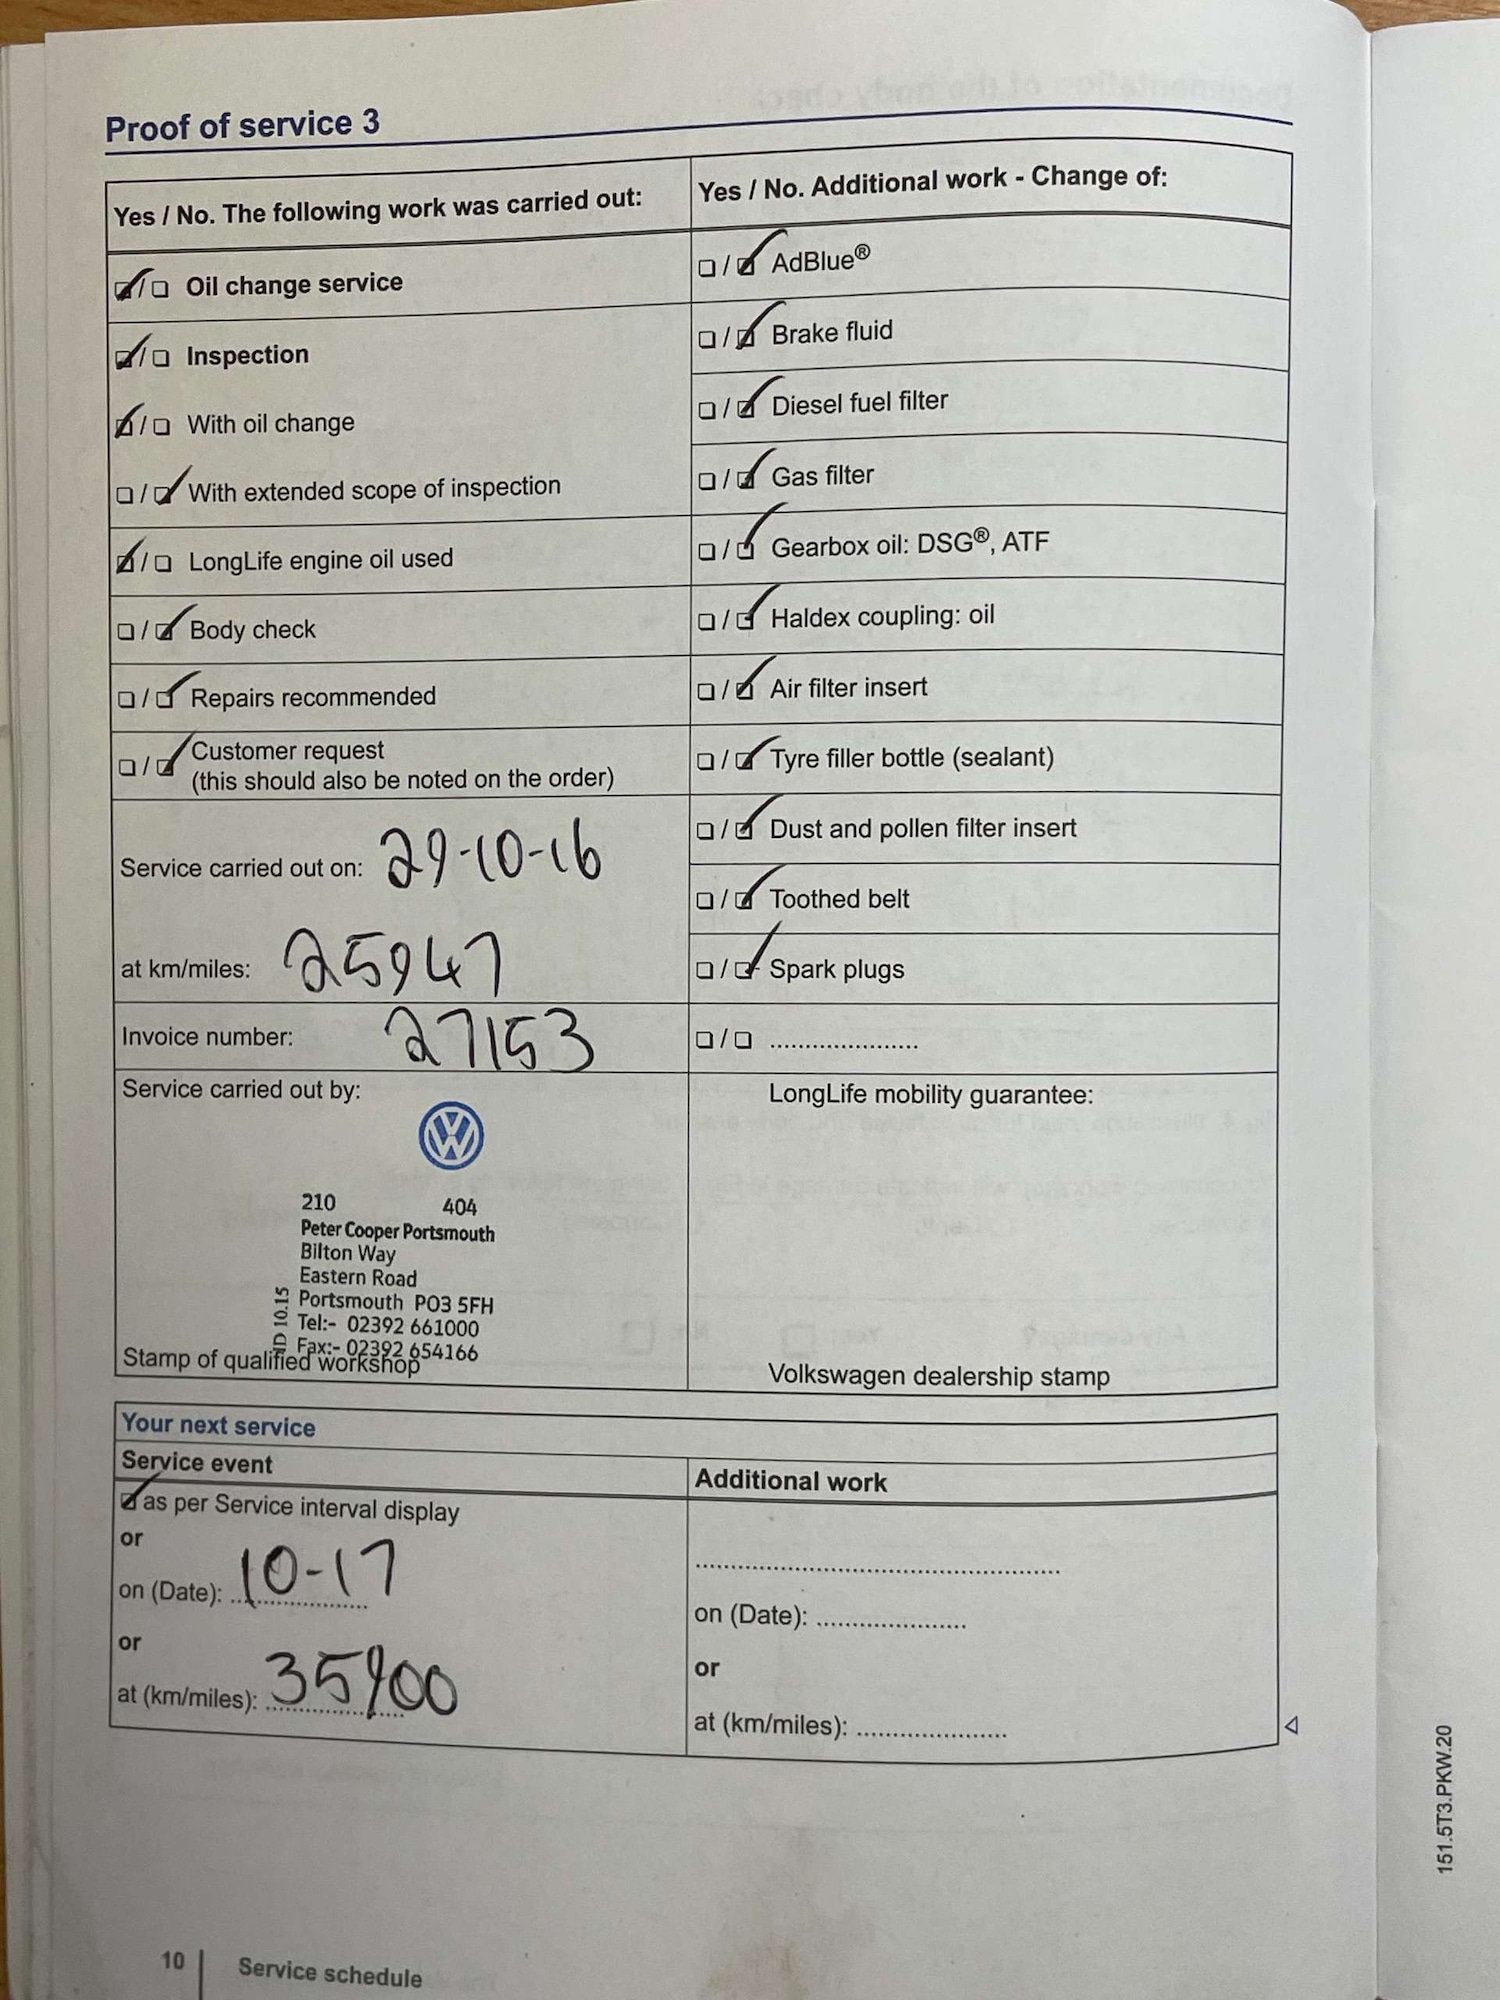 Proof of service 3
Yes / No. The following work was carried out:
Oil change service
Inspection
With oil change
With extended scope of inspection
LongLife engine oil used
Body check
Repairs recommended
Customer request
(this should also be noted on the order)
Service carried out on: 29-10-16
at km/miles: 25947
Invoice number: 27153
Service carried out by:
210 404
Peter Cooper Portsmouth
Bilton Way
Eastern Road
Portsmouth PO3 5FH
Tel:- 02392 661000
Fax:- 02392 654166
ID 10.15
Stamp of qualified workshop
Yes / No. Additional work - Change of:
AdBlue®
Brake fluid
Diesel fuel filter
Gas filter
Gearbox oil: DSG®, ATF
Haldex coupling: oil
Air filter insert
Tyre filler bottle (sealant)
Dust and pollen filter insert
Toothed belt
Spark plugs
LongLife mobility guarantee:
Volkswagen dealership stamp
Your next service
Service event
as per Service interval display
or
on (Date): 10-17
or
at (km/miles): 35900
Additional work
on (Date):
or
at (km/miles):
151.5T3.PKW.20
10 Service schedule